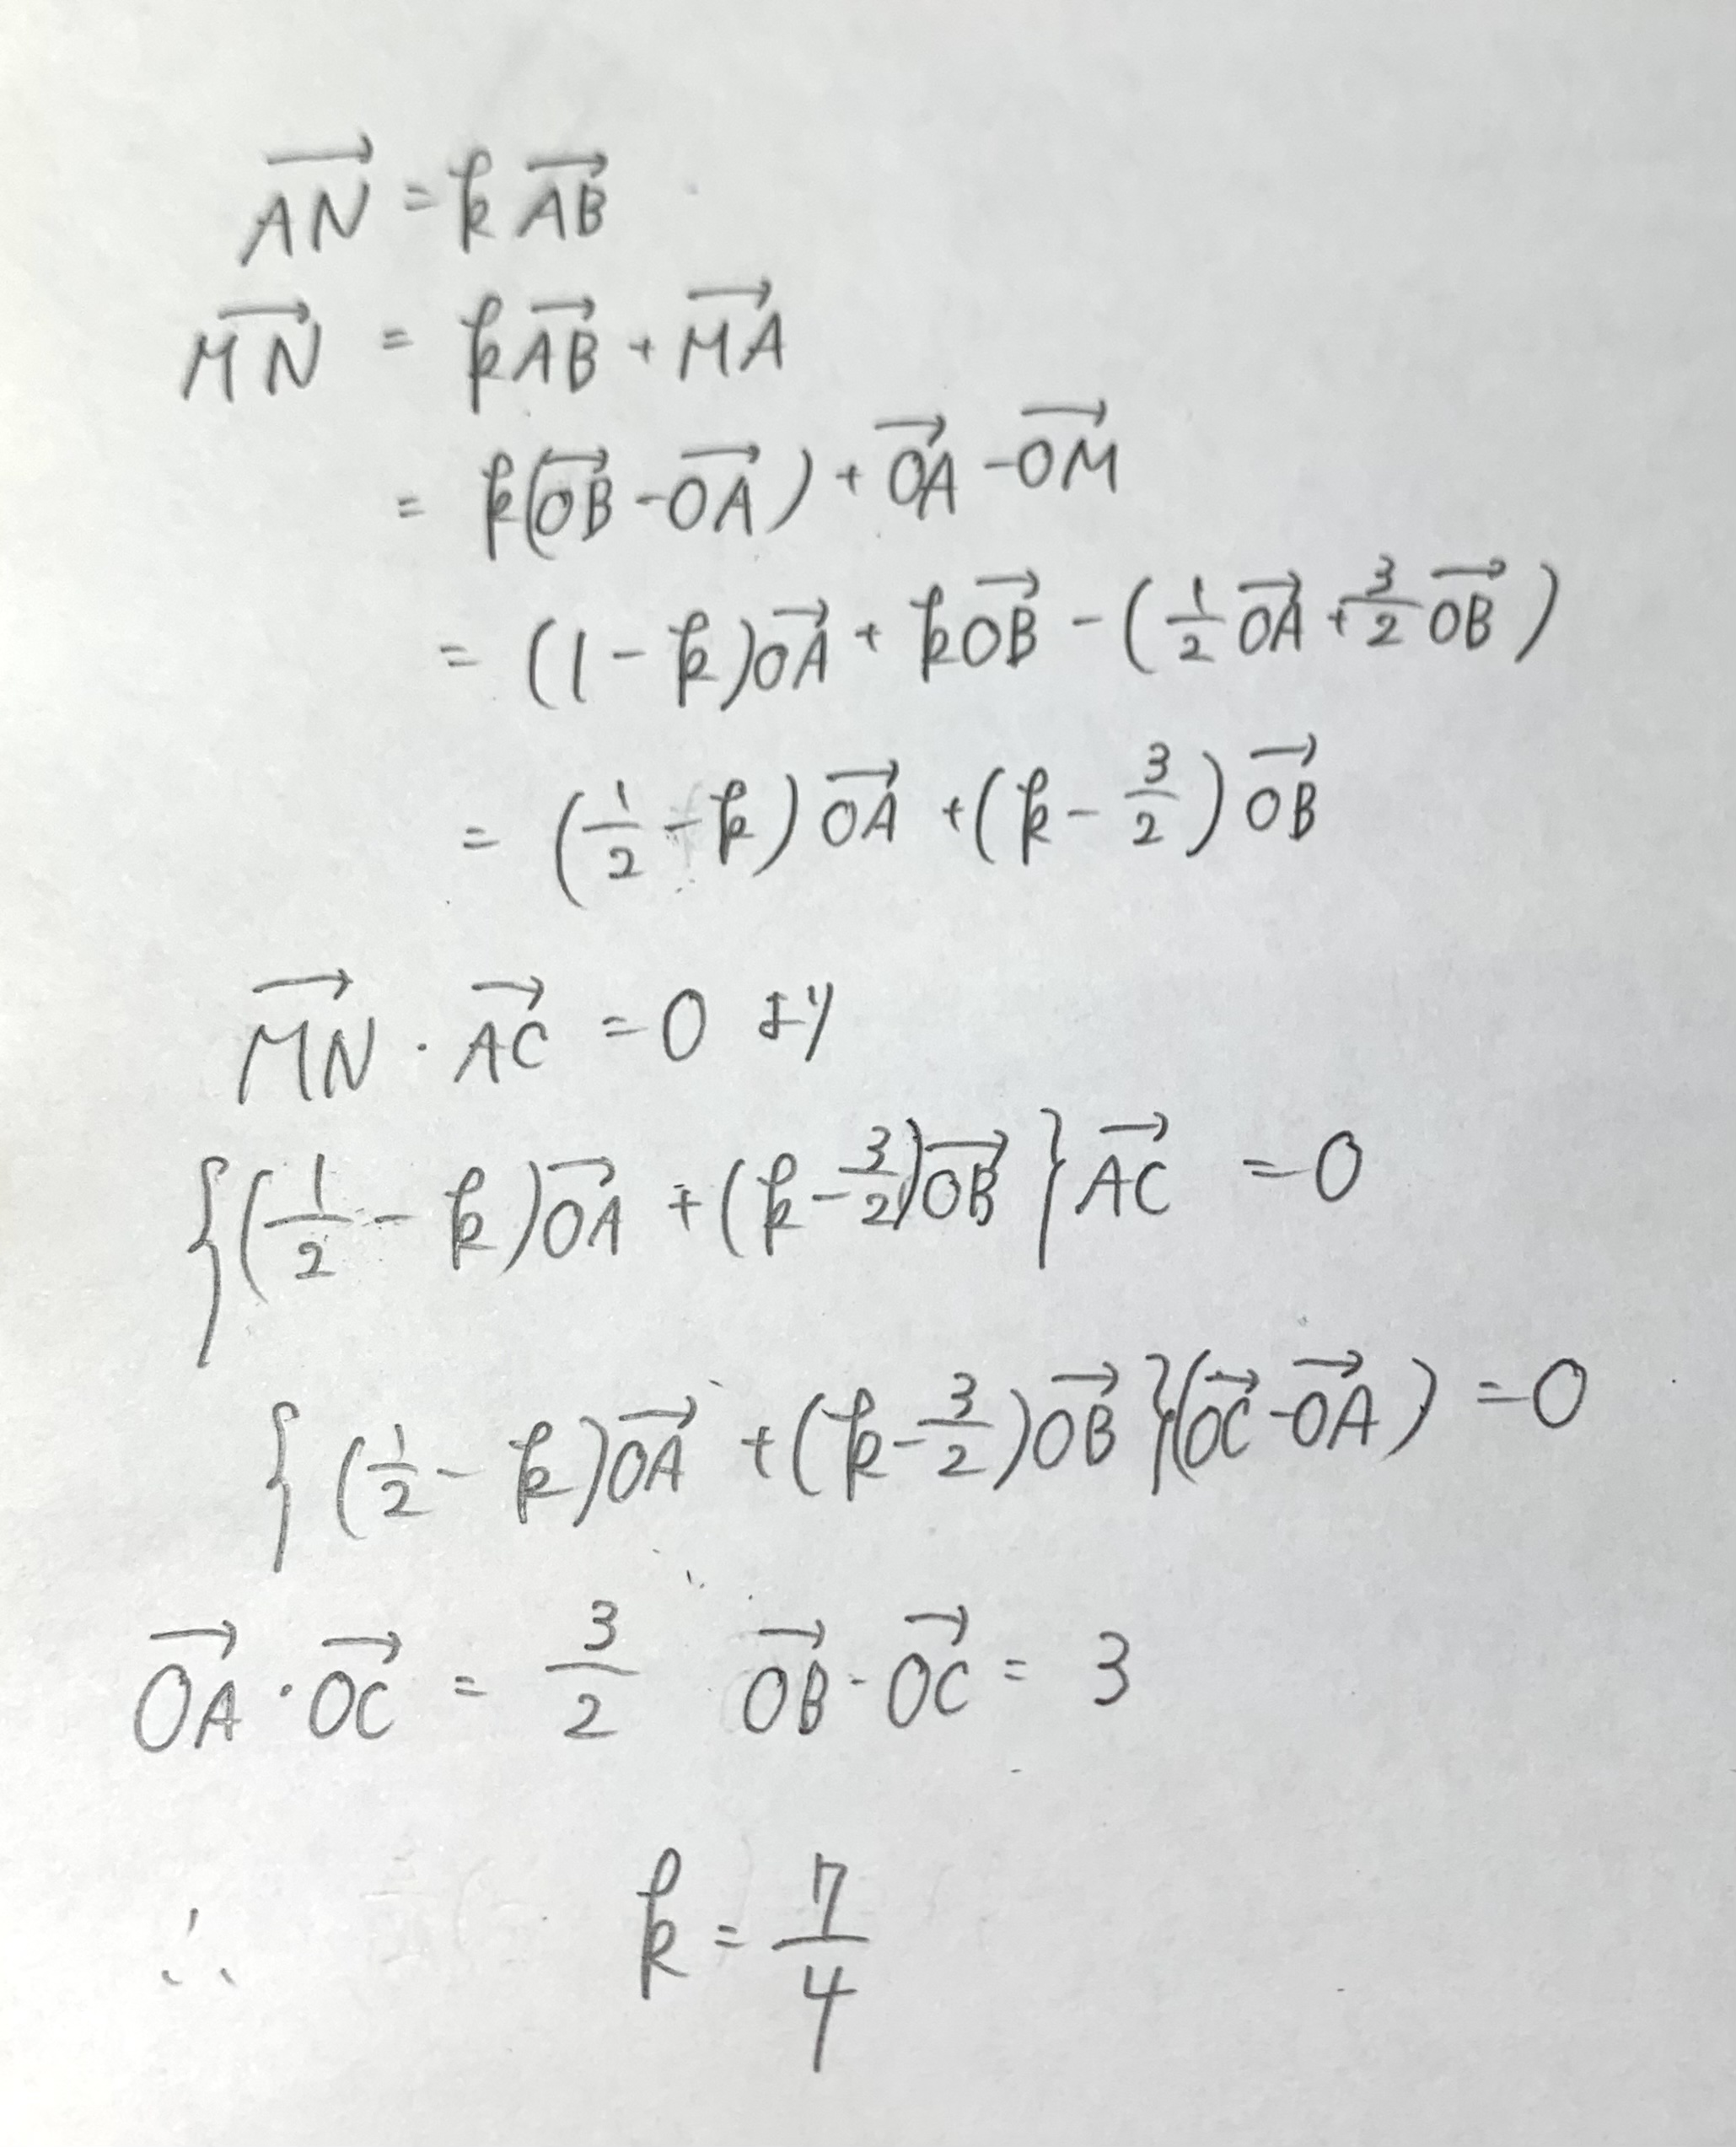 $\overrightarrow{AN} = k\overrightarrow{AB}$
$\overrightarrow{MN} = k\overrightarrow{AB} + \overrightarrow{MA}$
$= k(\overrightarrow{OB} - \overrightarrow{OA}) + \overrightarrow{OA} - \overrightarrow{OM}$
$= (1-k)\overrightarrow{OA} + k\overrightarrow{OB} - (\frac{1}{2}\overrightarrow{OA} + \frac{3}{2}\overrightarrow{OB})$
$= (\frac{1}{2} - k)\overrightarrow{OA} + (k - \frac{3}{2})\overrightarrow{OB}$
$\overrightarrow{MN} \cdot \overrightarrow{AC} = 0$ より
$\{(\frac{1}{2} - k)\overrightarrow{OA} + (k - \frac{3}{2})\overrightarrow{OB}\}\overrightarrow{AC} = 0$
$\{(\frac{1}{2} - k)\overrightarrow{OA} + (k - \frac{3}{2})\overrightarrow{OB}\}(\overrightarrow{OC} - \overrightarrow{OA}) = 0$
$\overrightarrow{OA} \cdot \overrightarrow{OC} = \frac{3}{2}$ $\overrightarrow{OB} \cdot \overrightarrow{OC} = 3$
$\therefore k = \frac{7}{4}$